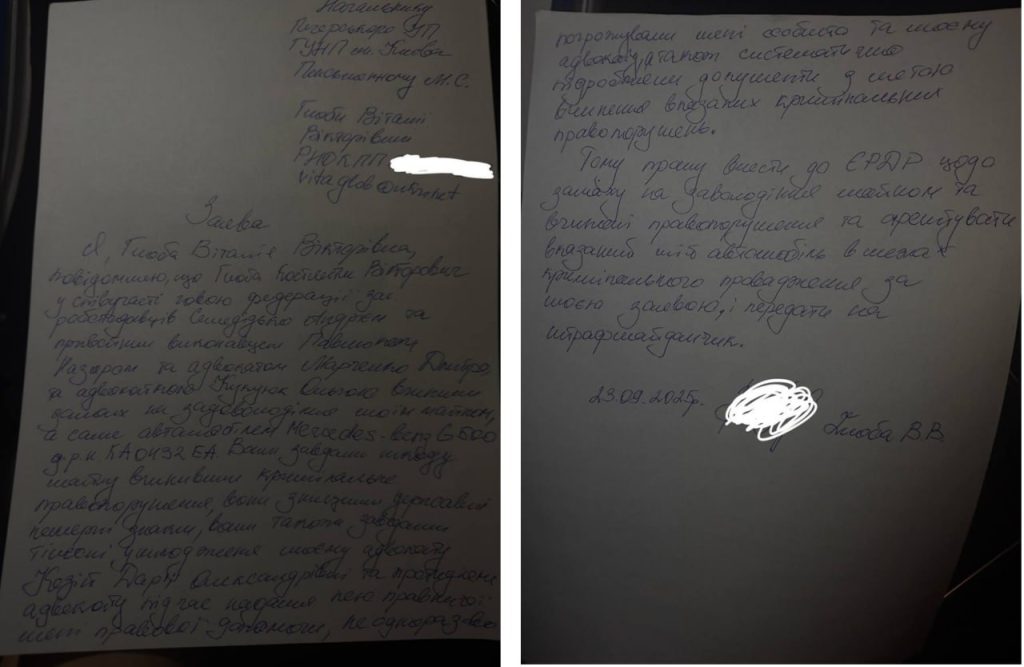 Начальнику
Печерського УП
ГУНП м. Києва
М.С.
Глоби Віталії
Вікторівни
РНОКПП
Заява
Я, Глоба Віталія Вікторівна,
повідомляю, що Глоба Костянтин Вікторович
у співучасті головою федерації
роботодавців Андрієм та
приватним виконавцем
Назаром та адвокатом Марченко Дмитро
та адвокаткою Ольгою вчинили
замах на заволодіння моїм майном,
а саме автомобілем Mercedes-benz G500
д.р.н. KA0192EA Вони завдали шкоду
майну вчинивши кримінальне
правопорушення, вони знищили державні
номерні знаки, вони також завдали
тілесні ушкодження моєму адвокату
Дар'ї Олександрівні та
адвокату під час надання нею
мені правової допомоги, неодноразово
погрожували мені особисто та моєму
адвокату, а також систематично
підробляли документи з метою
вчинення вказаних кримінальних
правопорушень.
Тому прошу внести до ЄРДР щодо
замаху на заволодіння майном та
вчинені правопорушення та арештувати
вказаний мій автомобіль в межах
кримінального провадження за
моєю заявою, і передати на
штрафмайданчик.
23.09.2025р.
Глоба В.В.